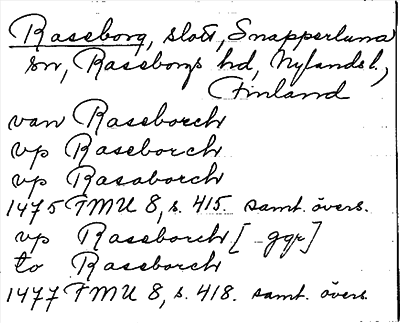 Raseborg, slott, Snappertuna
sn, Raseborgs hd, Nylands l.,
Finland
van Rasborch
vp Raseborch
vp Rasaborch
1475 FMU 8, s. 415. samt. övers.
vp Rasseborch [ ggr]
to Rasseborch
1477 FMU 8, s. 418. samt. övers.